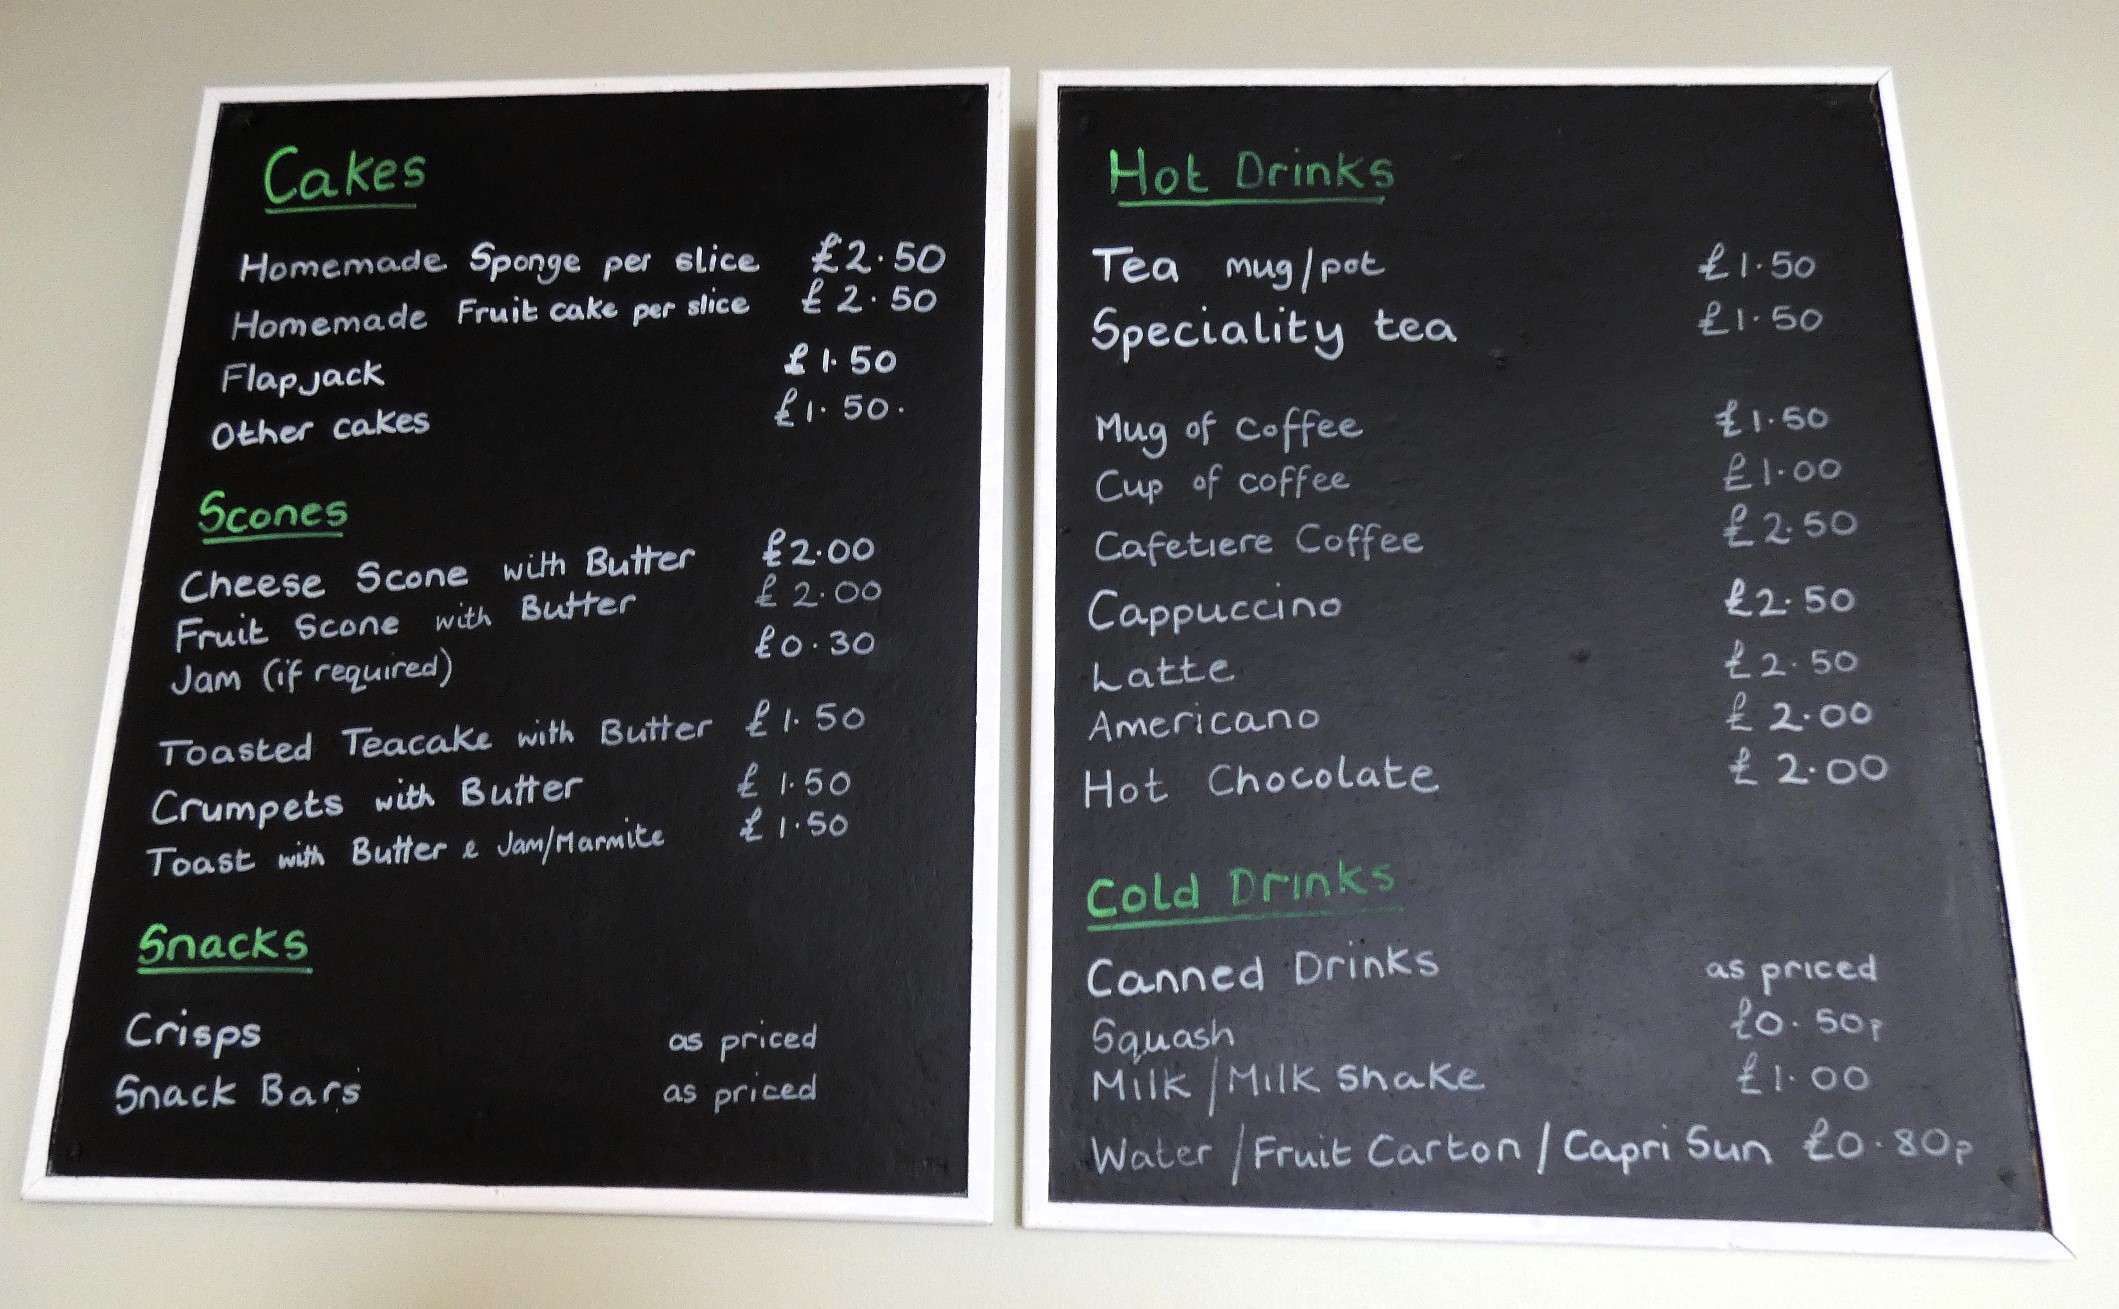 Cakes
Homemade Sponge per slice £2.50
Homemade Fruit cake per slice £2.50
Flapjack £1.50
Other cakes £1.50.
Scones
Cheese Scone with Butter £2.00
Fruit Scone with Butter £2.00
Jam (if required) £0.30
Toasted Teacake with Butter £1.50
Crumpets with Butter £1.50
Toast with Butter & Jam/Marmite £1.50
Snacks
Crisps as priced
Snack Bars as priced
Hot Drinks
Tea mug/pot £1.50
Speciality tea £1.50
Mug of coffee £1.50
Cup of coffee £1.00
Cafetiere Coffee £2.50
Cappuccino £2.50
Latte £2.50
Americano £2.00
Hot Chocolate £2.00
Cold Drinks
Canned Drinks as priced
Squash £0.50p
Milk/Milk shake £1.00
Water/Fruit Carton/Capri Sun £0.80p